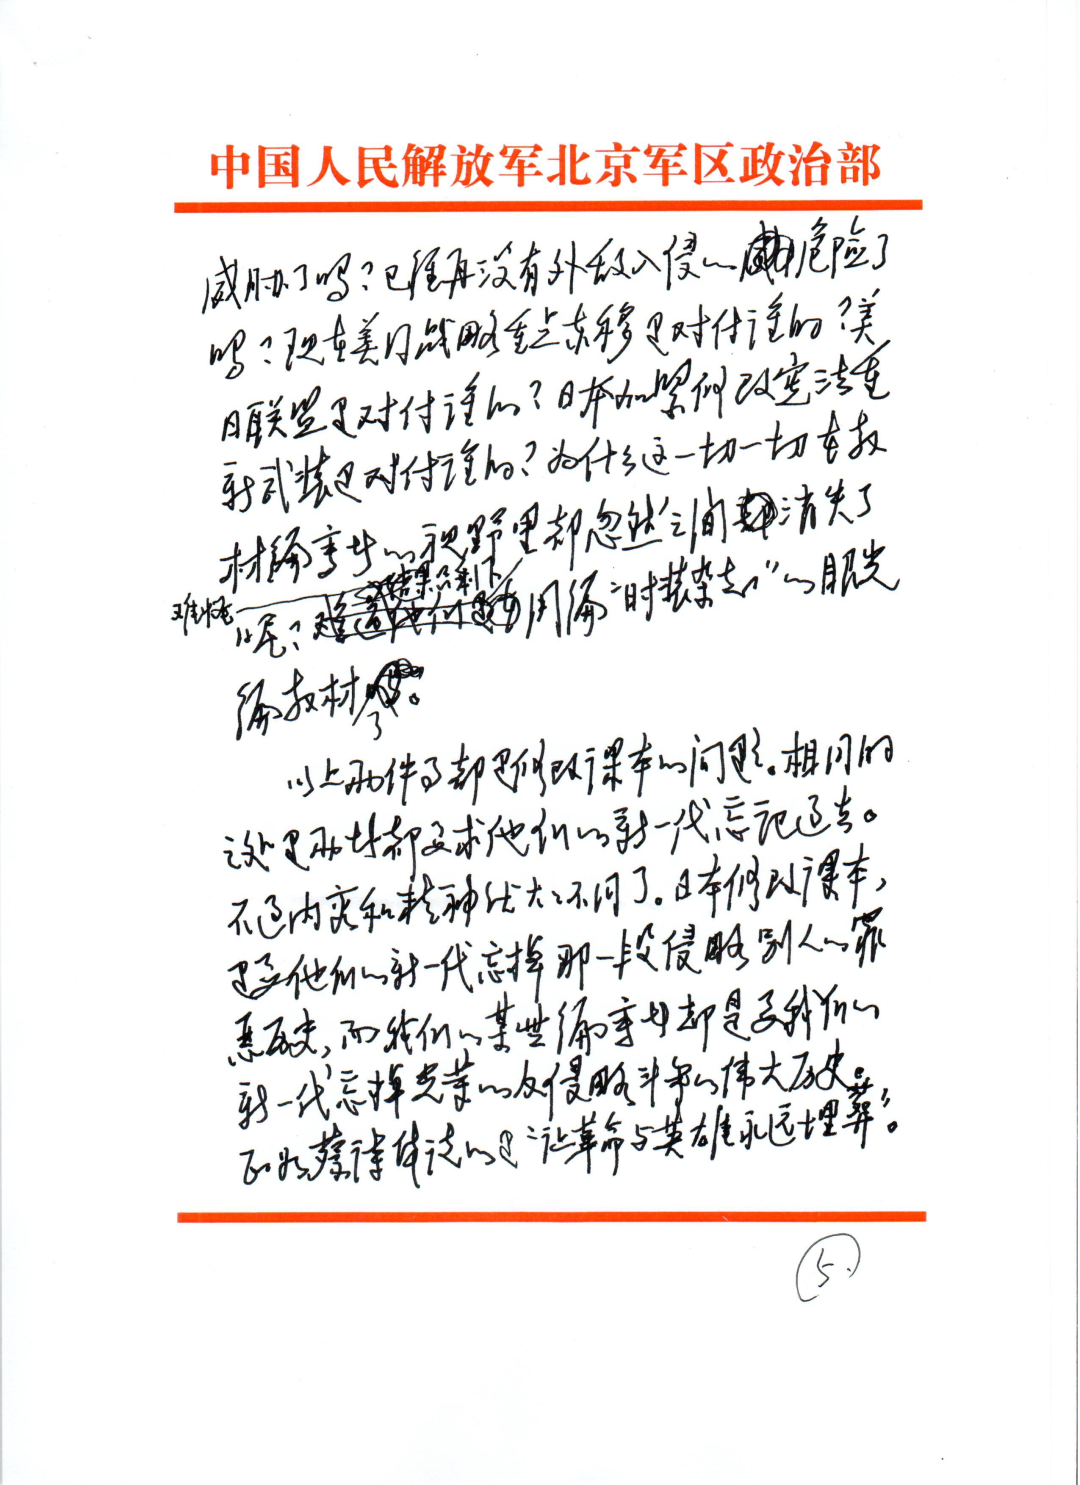 中国人民解放军北京军区政治部
威胁了吗？已经再没有外敌入侵的危险了
吗？现在美国战略重点东移是对付谁的？美
日联盟是对付谁的？日本加紧修改宪法重
新武装是对付谁的？为什么这一切一切在教
材编写者的视野里都忽然之间消失了
难怪 结果只剩下
呢？用编“时装杂志”的眼光
编教材了。
以上两件事都是修改课本的问题。相同的
这里两者都要求他们的新一代忘记过去。
不过内容和精神状大不同了。日本修改课本，
是要他们的新一代忘掉那一段侵略别人的罪
恶历史，而我们的某些编写者却是要我们的
新一代忘掉光荣的反侵略斗争的伟大历史。
正如蔡诗体说的是“让革命与英雄永远埋葬”。
5.